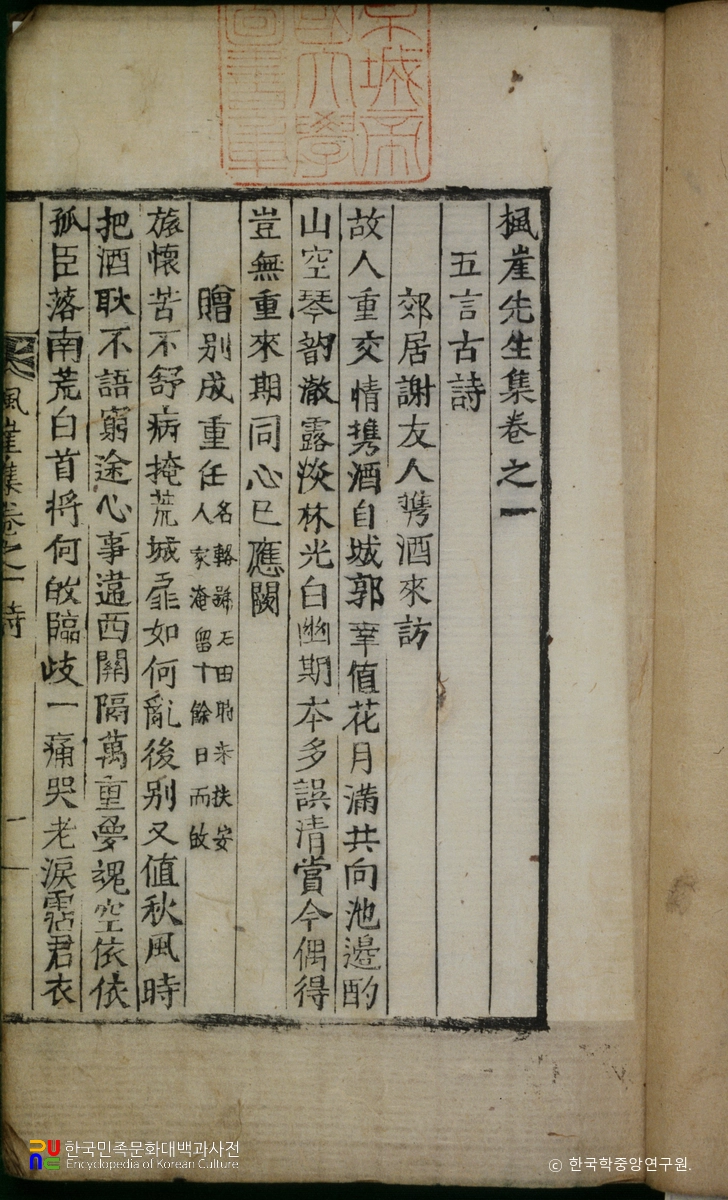 楓崖先生集卷之一
五言古詩
郊居謝友人携酒來訪
故人重交情携酒自城郭幸值花月滿共向池邊酌
山空琴韵澈露淡林光白幽期本多誤清賞今偶得
豈無重來期同心已應闋
贈別成重任 名輅號石田時来扶安
人家淹留十餘日而故
旅懷苦不舒病掩荒城扉如何亂後別又值秋風時
把酒耿不語窮途心事違西關隔萬重夢魂空依依
孤臣落南荒白首將何故臨歧一痛哭老淚霑君衣
楓崖集卷之一 詩 一
京城帝
國大學
圖書章
한국민족문화대백과사전
Encyclopedia of Korean Culture
© 한국학중앙연구원.